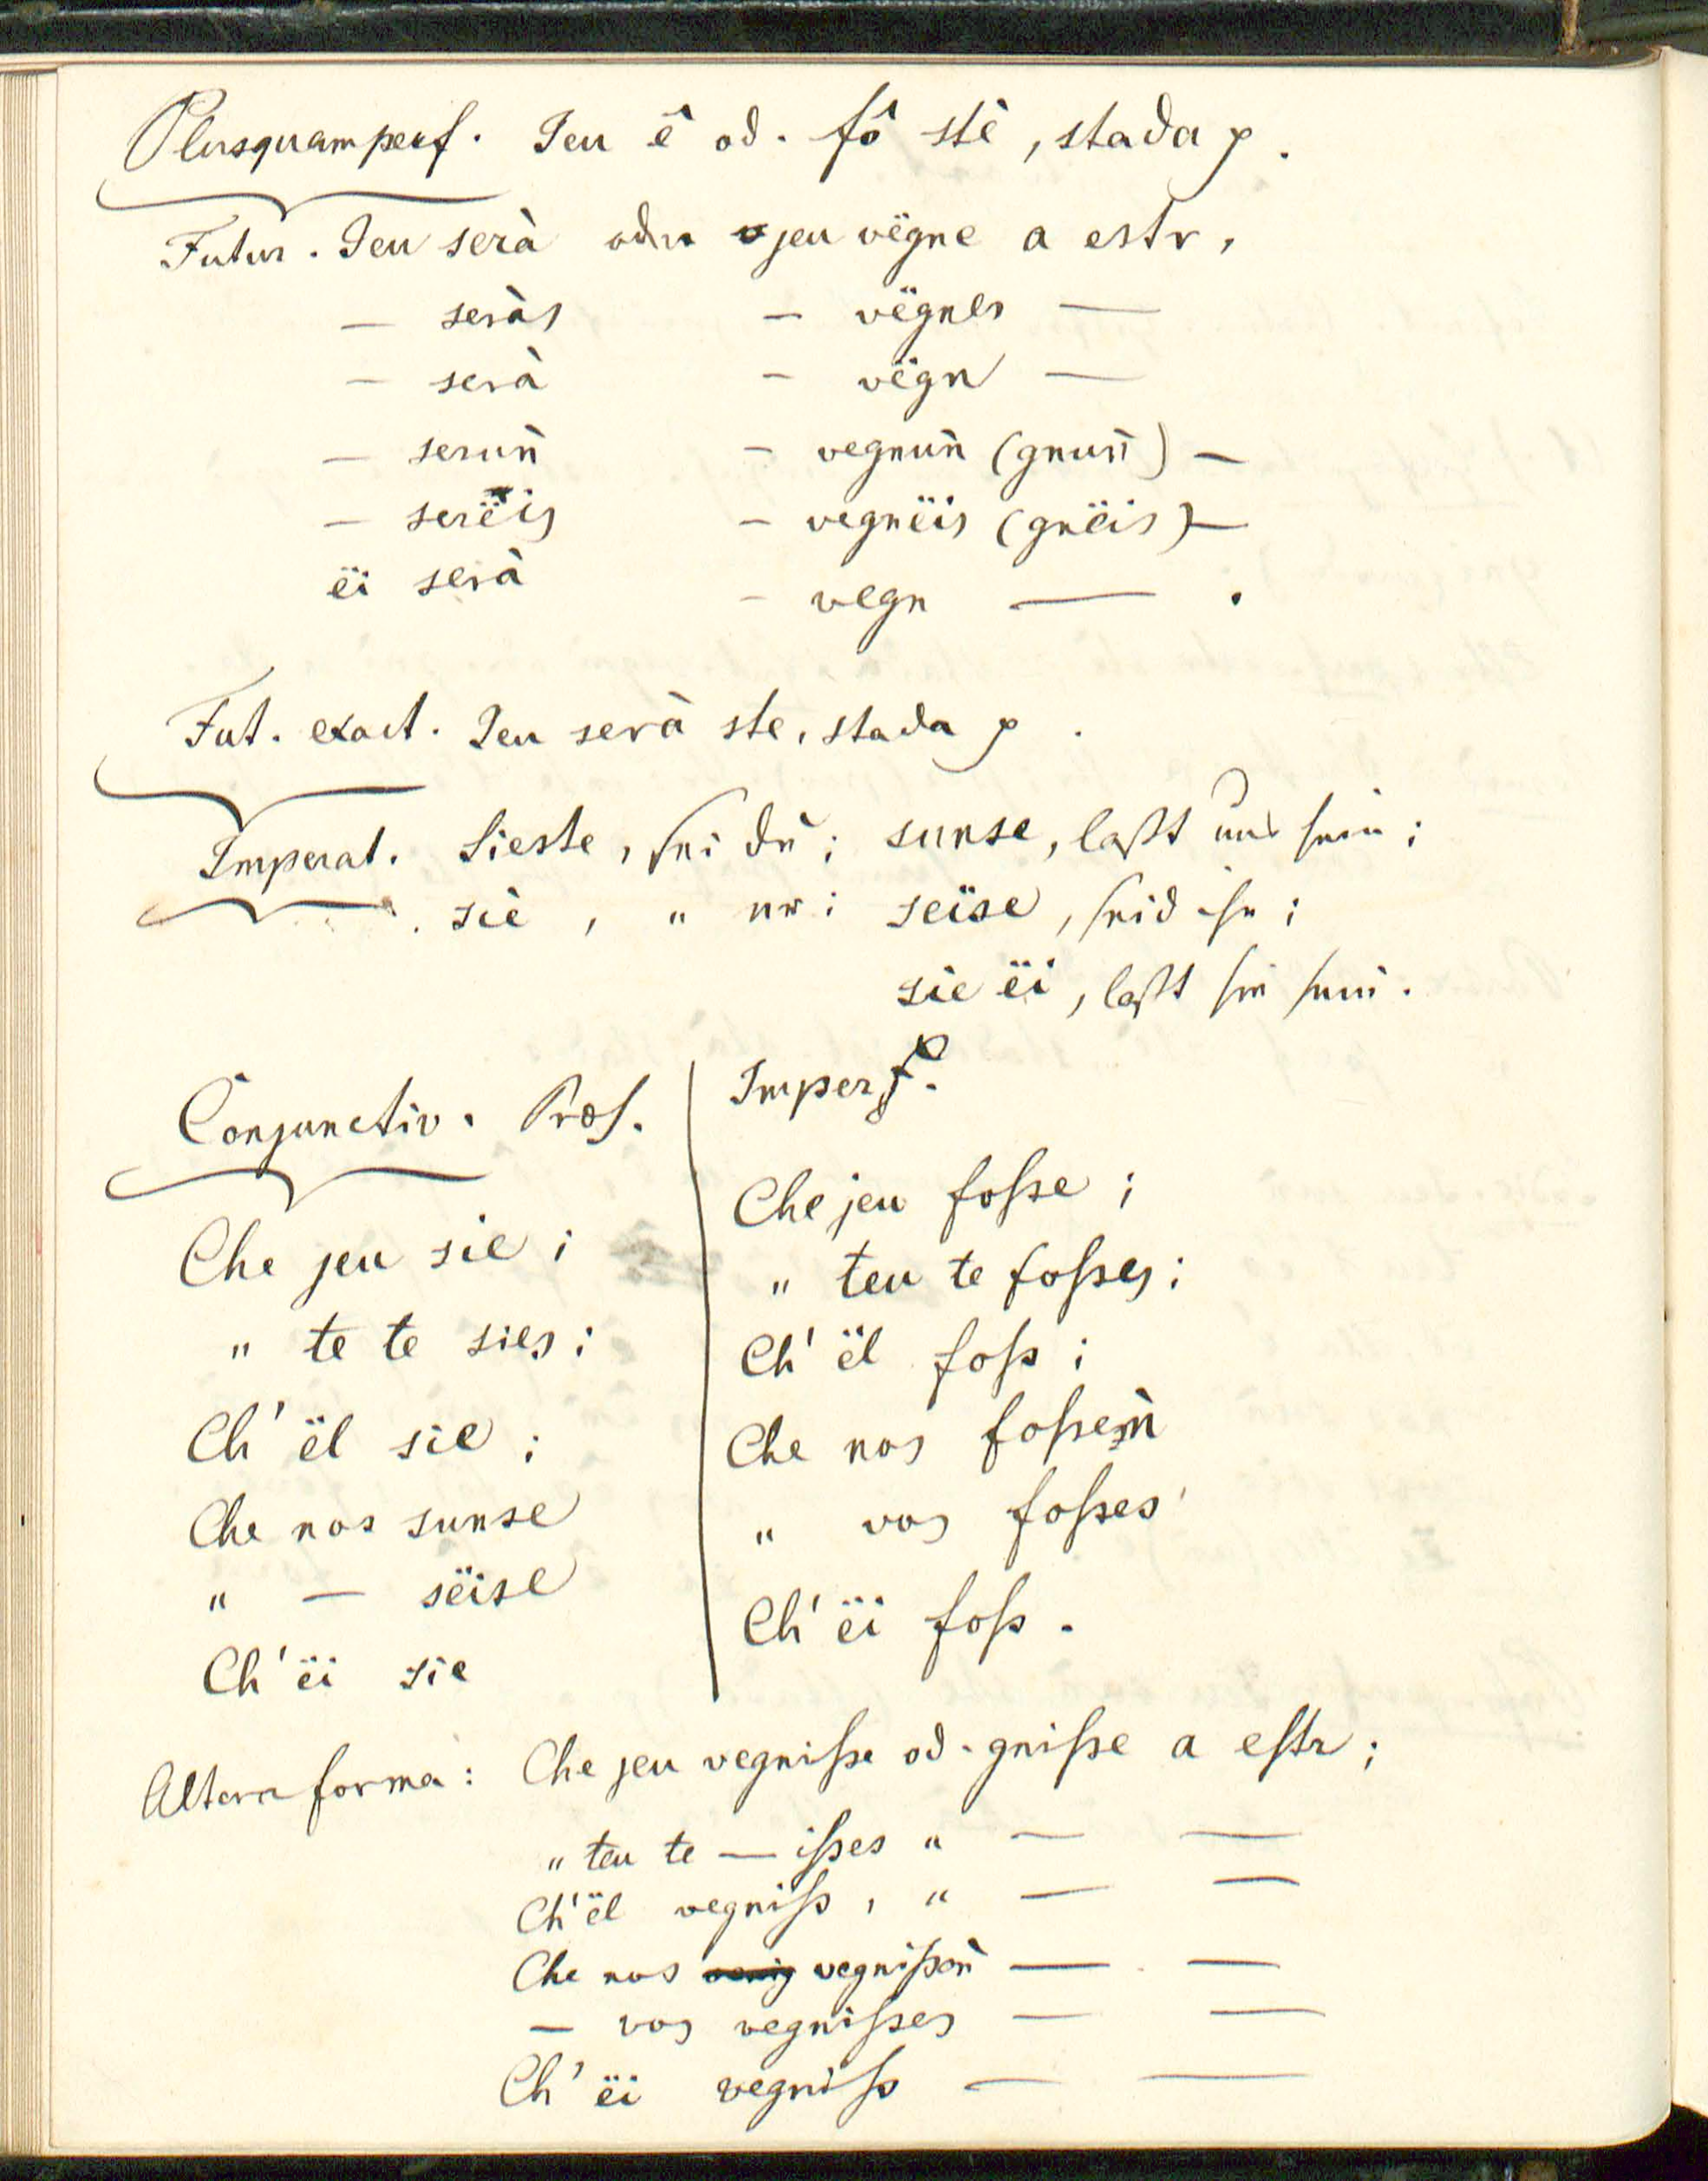 Plusquamperf. Jeu ê od. fô stè, stada p.
Futur. Jeu serà oder jeu vëgne a estr,
— seràs — vëgnes —
— serà — vëgn —
— seruǹ — vegnuǹ (gnuǹ) —
— serëis — vegnëis (gnëis) —
ëi serà — vegn — .
Fut. exact. Jeu serà ste, stada p.
Imperat. Sieste, sei du; sunse, laßt uns sein;
siè, " er; sëise, seid ihr;
sie ëi, laßt sie sein.
Conjunctiv. Præs.
Che jeu sie;
" te te sies;
Ch' ël sie;
Che nos sunse
" — sëise
Ch' ëi sie
Imperf.
Che jeu foße;
" teu te foßes;
Ch' ël foß;
Che nos foßeǹ
" vos foßes
Ch' ëi foß.
Altera forma: Che jeu vegniße od. gniße a estr;
" teu te — ißes " — —
Ch' ël vegniß, " — —
Che nos vegnißeǹ — —
— vos vegnißes — —
Ch' ëi vegniß — —